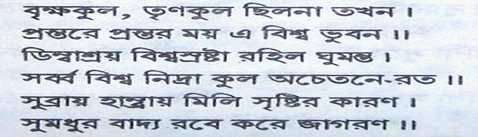 বৃক্ষকুল, তৃণকুল ছিলনা তখন ।
প্রস্তরে প্রস্তর ময় এ বিশ্ব ভুবন ।।
ডিম্বাশ্রয় বিশ্বস্রষ্টা রহিল ঘুমন্ত ।
সর্ব্ব বিশ্ব নিদ্রা কুল অচেতনে-রত ।।
সুব্রায় হাম্ব্রায় মিলি সৃষ্টির কারণ ।
সুমধুর বাদ্য রবে করে জাগরণ ।।